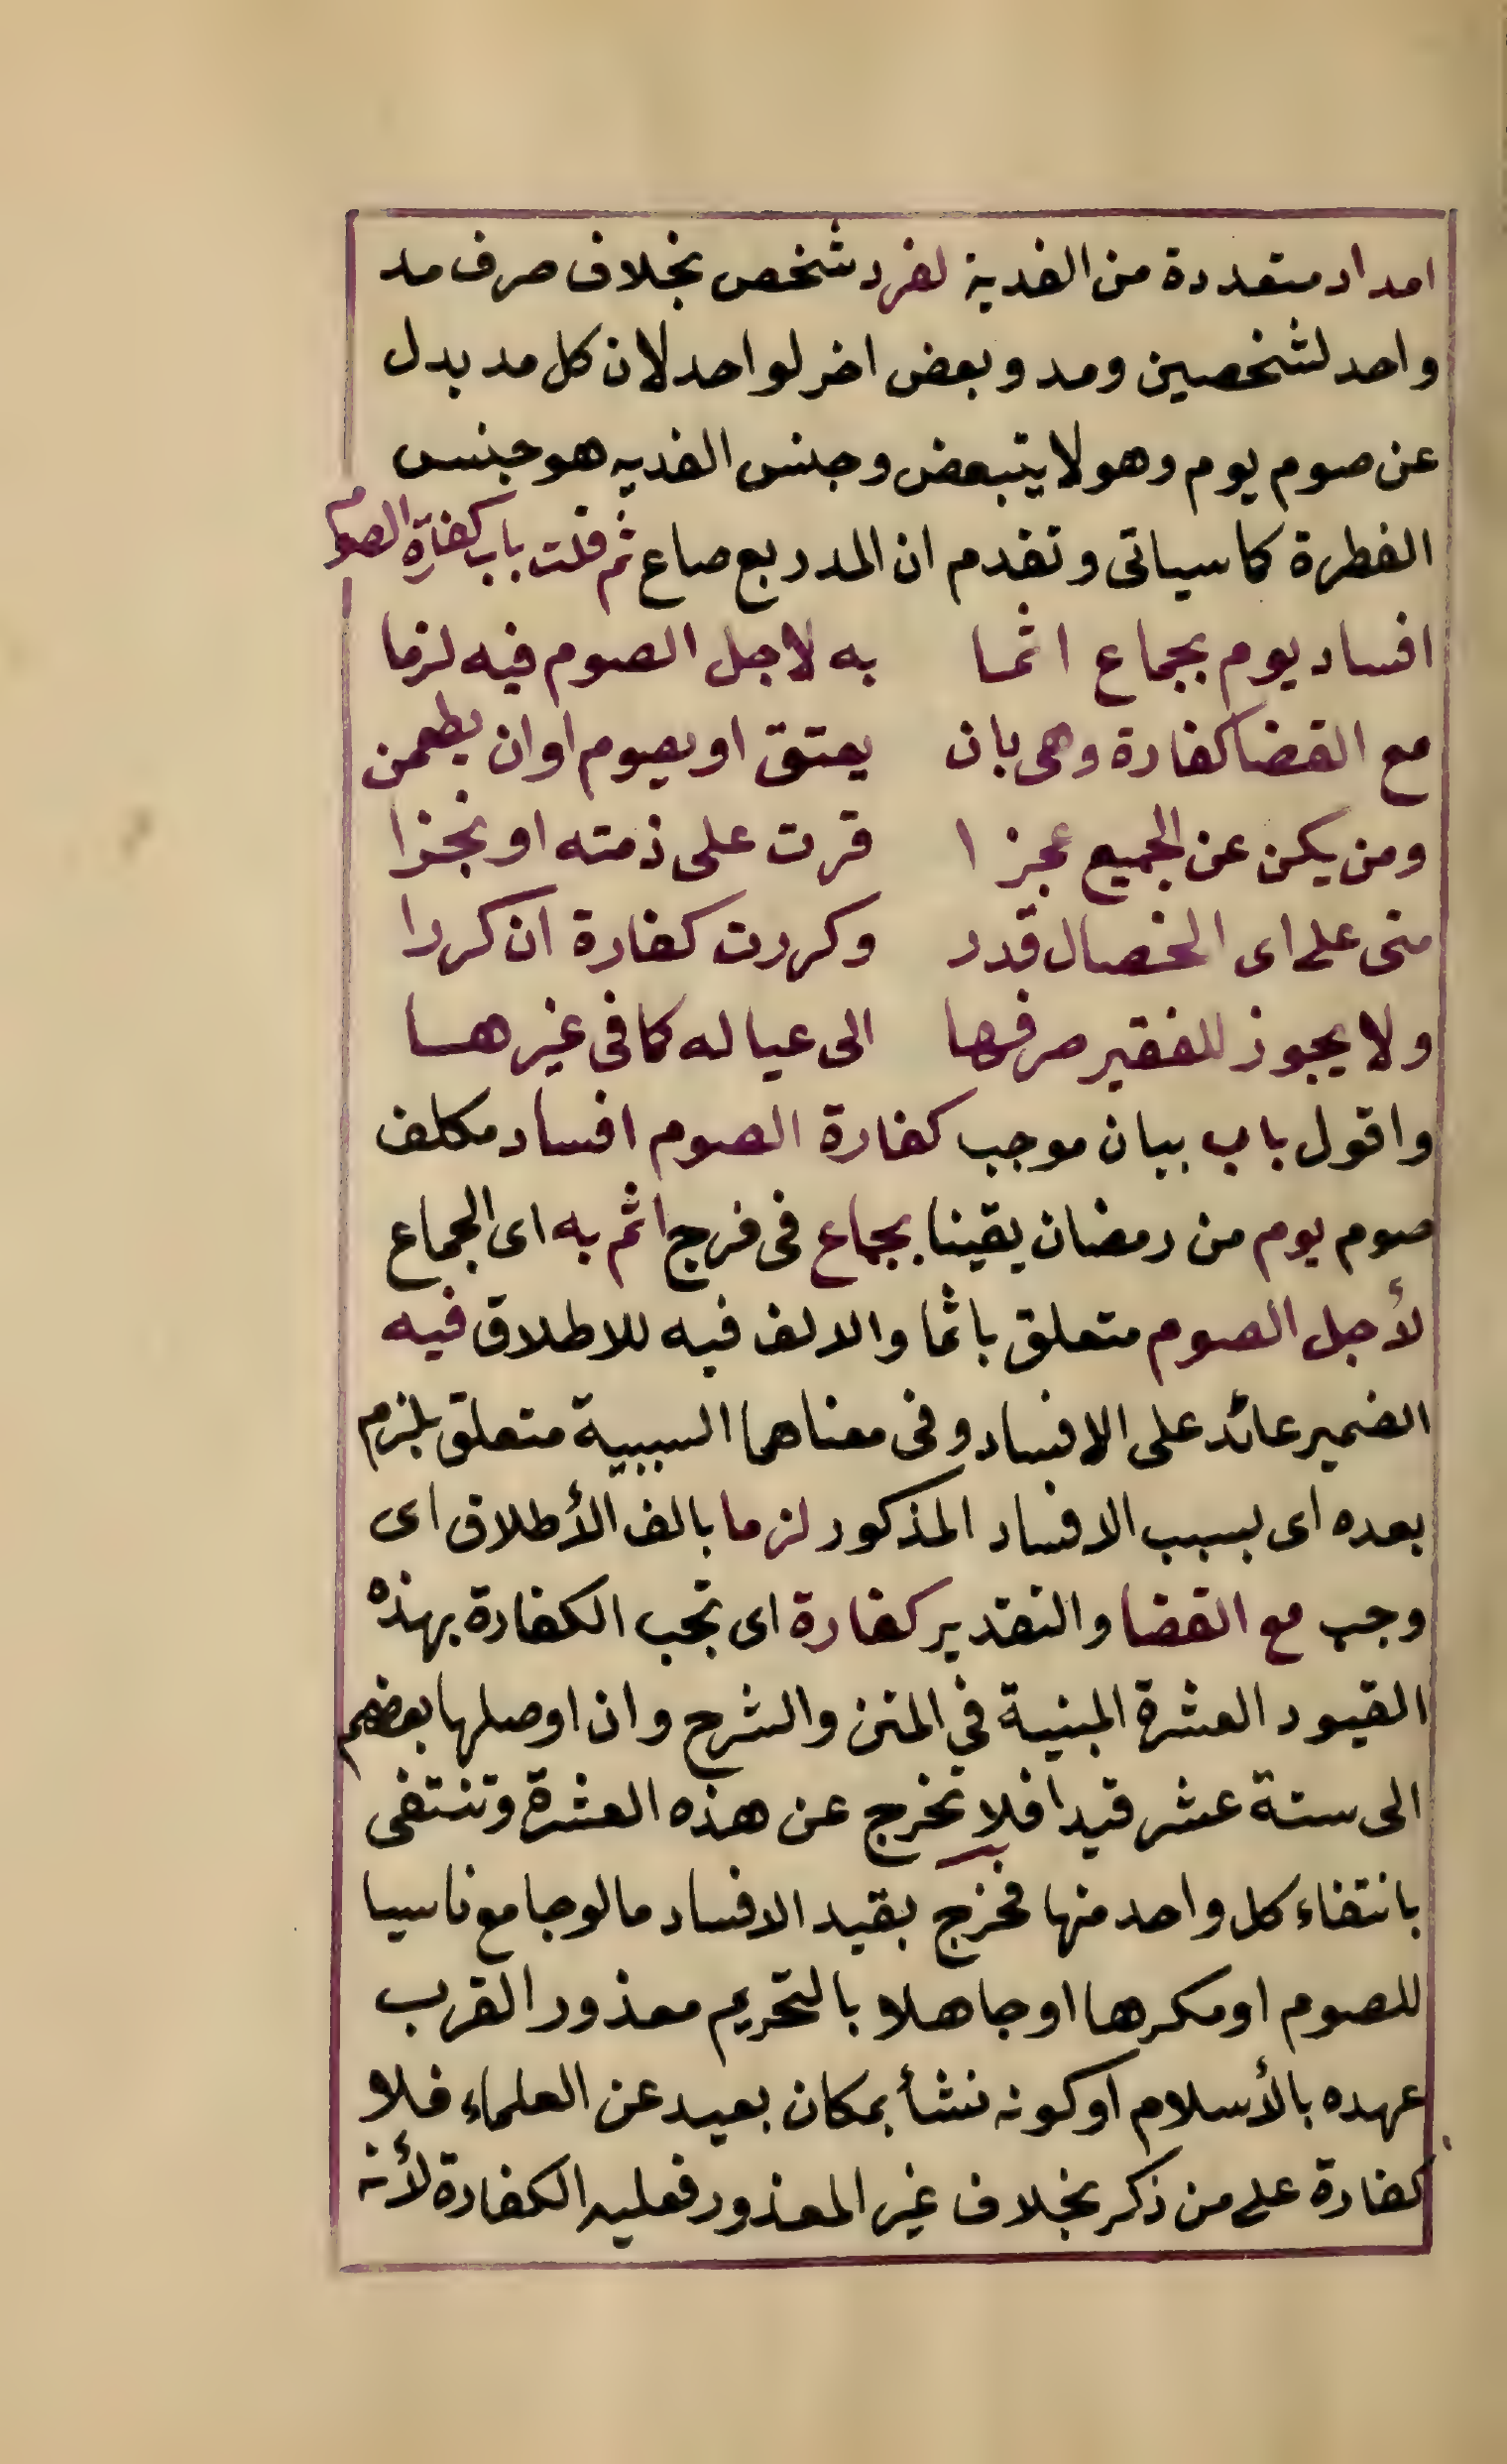 امداد متعددة من الفدية لفرد شخص بخلاف صرف مد
واحد لشخصين ومد وبعض اخر لواحد لان كل مد بدل
عن صوم يوم وهو لا يتبعض وجنس الفديه هو جنس
الفطرة كما سياتى وتقدم ان المد ربع صاع ثم قلت باب كفارة الصوم
افساد يوم بجماع اثما به لاجل الصوم فيه لزما
مع القضا كفارة وهى بان يعتق او يصوم او ان يطعمن
ومن يكن عن الجميع عجزا قرت على ذمته او نجزا
متى على اى الخصال قدر وكررت كفارة ان كررا
ولا يجوز للفقير صرفها الى عياله كما فى غيرها
واقول باب بيان موجب كفارة الصوم افساد مكلف
صوم يوم من رمضان يقينا بجماع فى فرج اثم به اى الجماع
لأجل الصوم متعلق باثما والالف فيه للاطلاق فيه
الضمير عائد على الافساد وفى معناهما السببية متعلق بلزم
بعده اى بسبب الافساد المذكور لزما بالف الأطلاق اى
وجب مع القضا والتقدير كفارة اى تجب الكفارة بهذه
القيود العشرة المبنية في المتن والشرح وان اوصلها بعضهم
الى ستة عشر قيدا فلا تخرج عن هذه العشرة وتنتفى
بانتفاء كل واحد منها فخرج بقيد الافساد ما لو جامع ناسيا
للصوم او مكرها او جاهلا بالتحريم معذور القرب
عهده بالأسلام او كونه نشأ بمكان بعيد عن العلماء فلا
كفارة على من ذكر بخلاف غير المعذور فعليه الكفارة لأنه